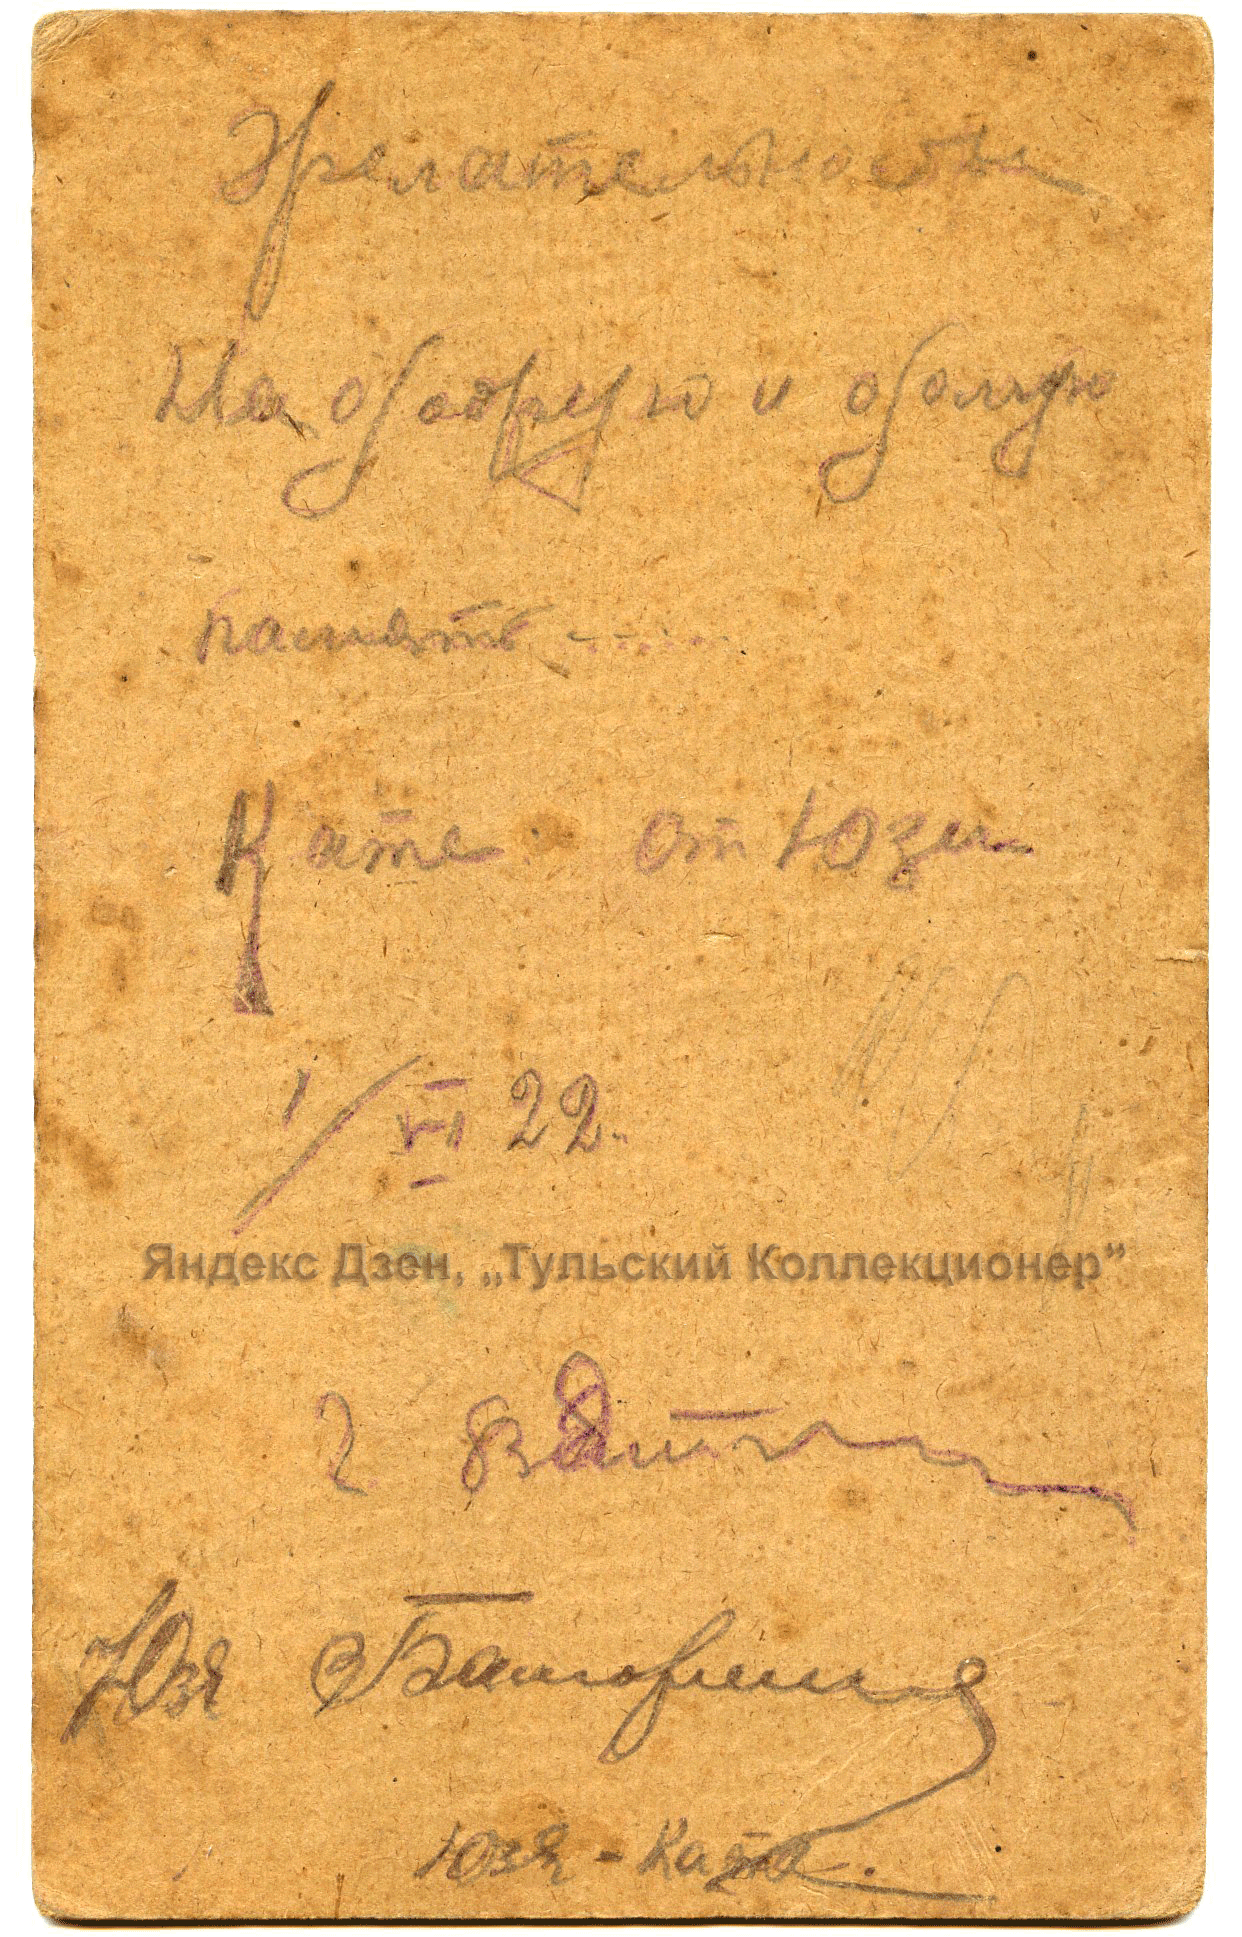 На добрую и долгую
память
Кате от Юзи
1/VII 22
Яндекс Дзен, „Тульский Коллекционер”
г Вятка
Юзя
Юзя - Катя.